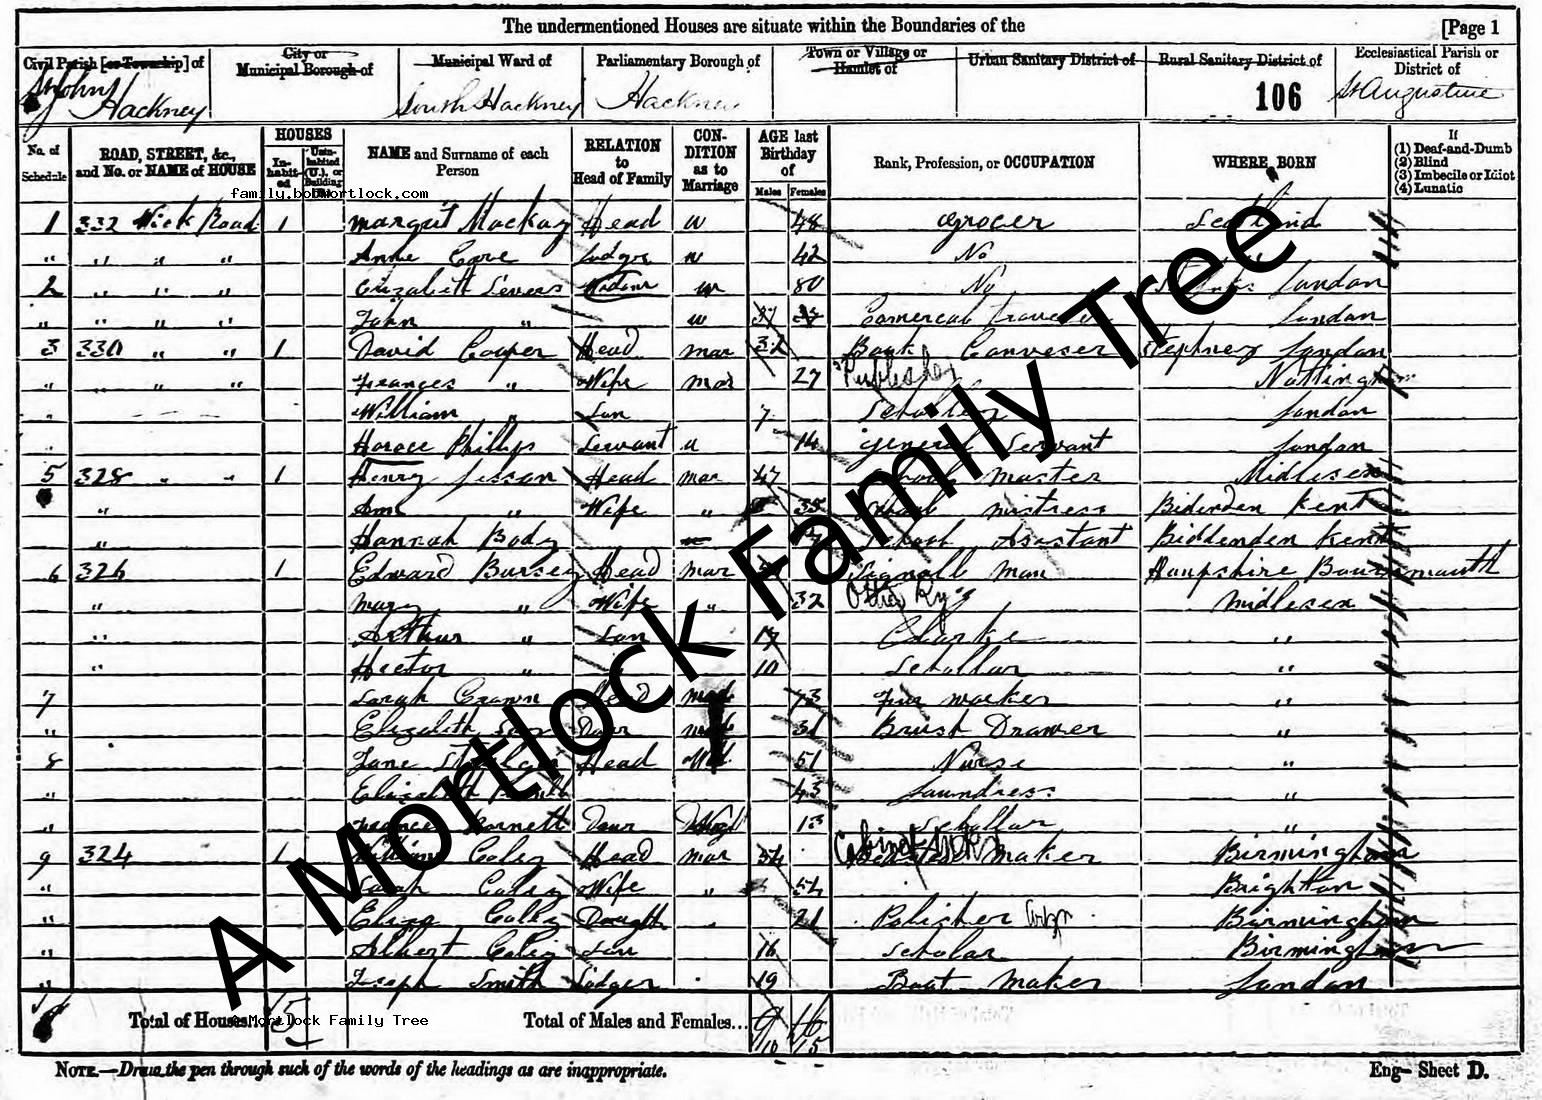 The undermentioned Houses are situate within the Boundaries of the [Page 1
Civil Parish [or Township] of
City or Municipal Borough of
Municipal Ward of
Parliamentary Borough of
Town or Village or Hamlet of
Urban Sanitary District of
Rural Sanitary District of
Ecclesiastical Parish or District of
St John Hackney
South Hackney
Hackney
106
St Augustine
No. of Schedule
ROAD, STREET, &c., and No. or NAME of HOUSE
HOUSES
In-habit-ed
Unin-habited (U.), or Building
NAME and Surname of each Person
RELATION to Head of Family
CON-DITION as to Marriage
AGE last Birthday of
Males Females
Rank, Profession, or OCCUPATION
WHERE BORN
If
(1) Deaf-and-Dumb
(2) Blind
(3) Imbecile or Idiot
(4) Lunatic
family.bobmortlock.com
1 332 Wick Road 1 Margret Mackay Head W 48 Grocer Scotland
" " " " Anne Lodger 42 No
2 " " " Elizabeth Severs W 80 No London
" " " " John " 37 Comercal Traveler London
3 330 " " 1 David Cooper Head Mar 32 Book Canveser Stephney London
" " " " Frances " Wife Mar 27 Publisher
" William " Son 7 London
Horace Phillips Servant U 14 General Servant London
5 328 " " 1 Henry Head Mar 47 School Master Midlesex
" Ann " Wife " 35 School Mistress Bidenden Kent
" Hannah Body School Asistant Biddenden Kent
6 326 1 Edward Bursey Head Mar Signall Man Hampshire Bournmouth
" Mary " Wife " 32 Midlesex
" Arthur " Son 17 Clarke "
" Hector " 10 Schollar "
7 Sarah Head 73 Fur Worker "
" Elizabeth Daur 31 Brush Drawer "
8 Jane Head 51 Nurse "
" Elizabeth 43 Laundress "
" Daur 13 Schollar "
9 324 1 William Caley Head Mar 54 Cabinet Maker Birmingham
" Sarah Caley Wife " 54 Brighton
" Eliza Caley Daught 21 Polisher Birmingham
" Albert Caley Son 16 Scholar Birmingham
" Joseph Smith Lodger 19 Boot Maker London
Total of Houses... 5
Total of Males and Females... 9 16
10 15
© Mortlock Family Tree
A Mortlock Family Tree
NOTE.—Draw the pen through such of the words of the headings as are inappropriate.
Eng— Sheet D.